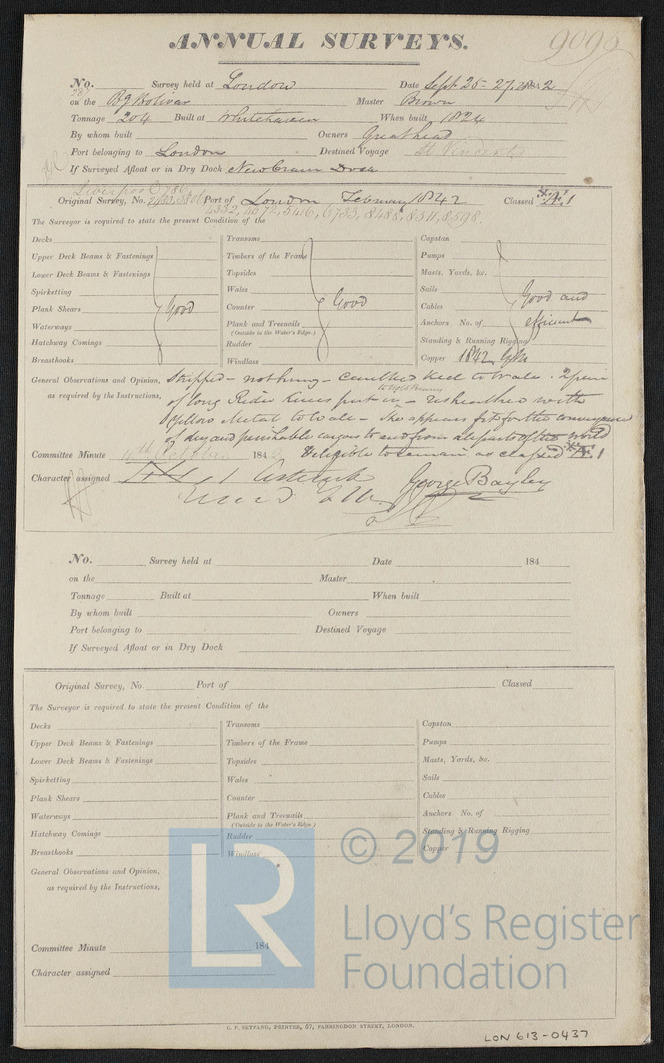 ANNUAL SURVEYS. 9090
No. Survey held at London Date Sept 25-27, 1842
on the Bg Bolivar Master Brown
Tonnage 204 Built at Whitehaven When built 1824
By whom built Owners Greathead
Port belonging to London Destined Voyage St Vincents
If Surveyed Afloat or in Dry Dock New Crane Dock
Liverpool 786
Original Survey, No. Port of London February 1842 Classed Æ 1
4332, 4572, 5416, 6733, 8488, 8511, 8598.
The Surveyor is required to state the present Condition of the
Decks
Upper Deck Beams & Fastenings
Lower Deck Beams & Fastenings
Spirketting
Plank Shears
Waterways
Hatchway Comings
Breasthooks
Good
Transoms
Timbers of the Frame
Topsides
Wales
Counter
Plank and Treenails
(Outside to the Water's Edge.)
Rudder
Windlass
Good
Capstan
Pumps
Masts, Yards, &c.
Sails
Cables
Anchors No. of
Standing & Running Rigging
Copper 1842
Good and
efficient
General Observations and Opinion, Stripped - nothing - caulked keel to wale.
as required by the Instructions, of long Rider Knees put in - resheathed with
Yellow Metal to wale - She appears fit for the conveyance
of dry and perishable cargoes to and from all parts of the world
Committee Minute 184 & eligible to remain as classed Æ 1
Character assigned Asterisk George Bayley
No. Survey held at Date 184
on the Master
Tonnage Built at When built
By whom built Owners
Port belonging to Destined Voyage
If Surveyed Afloat or in Dry Dock
Original Survey, No. Port of Classed
The Surveyor is required to state the present Condition of the
Decks
Upper Deck Beams & Fastenings
Lower Deck Beams & Fastenings
Spirketting
Plank Shears
Waterways
Hatchway Comings
Breasthooks
Transoms
Timbers of the Frame
Topsides
Wales
Counter
Plank and Treenails
(Outside to the Water's Edge.)
Rudder
Windlass
Capstan
Pumps
Masts, Yards, &c.
Sails
Cables
Anchors No. of
Standing & Running Rigging
Copper
General Observations and Opinion,
as required by the Instructions,
Committee Minute 184
Character assigned
LR
© 2019
Lloyd's Register
Foundation
C. F. SEYFANG, PRINTER, 57, FARRINGDON STREET, LONDON.
LON 613-0437